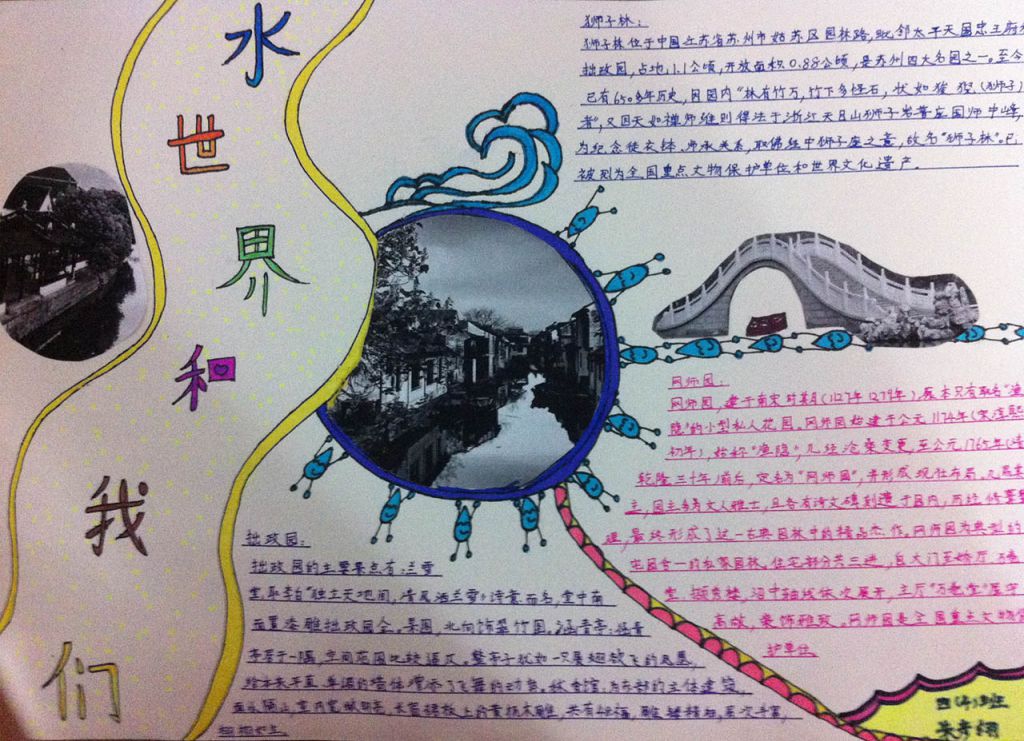 水世界和我们
狮子林：
狮子林位于中国江苏省苏州市姑苏区园林路,毗邻太平天国忠王府
拙政园,占地1.1公顷,开放面积0.88公顷,是苏州四大名园之一。至今
已有650多年历史,因园内“林有竹万,竹下多怪石,状如狻猊(狮子)
者”,又因天如禅师维则得法于浙江天目山狮子岩普应国师中峰,
为纪念徒衣钵、师承关系,取佛经中狮子座之意,故名“狮子林”。已
被列为全国重点文物保护单位和世界文化遗产。
网师园：
网师园,建于南宋时期(1127年1279年),原本只有取名“渔
隐”的小型私人花园。网师园始建于公元1174年(宋淳熙
初年),始称“渔隐”,几经沧桑变更,至公元1765年(清
乾隆三十年)前后,定名为“网师园”,并形成现状布局。几易其
主,园主多为文人雅士,且各有诗文碑刻遗于园内,历经修葺整
理,最终形成了这一古典园林中的精品杰作。网师园为典型的
宅园合一的私家园林。住宅部分共三进,自大门至轿厅、万卷
堂、撷秀楼,沿中轴线依次展开,主厅“万卷堂”屋宇
高敞,装饰雅致。网师园是全国重点文物保
护单位
拙政园：
拙政园的主要景点有:兰雪
堂,取李白“独立天地间,清风洒兰雪”诗意而名,堂中南
面置漆雕拙政园全景图,北向饰翠竹图。涵青亭:涵青
亭居于一隅,空间范围比较逼仄,整亭子犹如一只展翅欲飞的凤凰,
给本来平直、单调的墙体增添了飞舞的动势。秫香馆:为东部的主体建筑,
面水隔山,室内宽敞明亮,长窗裙板上的黄杨木雕,共有48幅,雕镂精细,层次丰富,
栩栩如生。
四(4)班